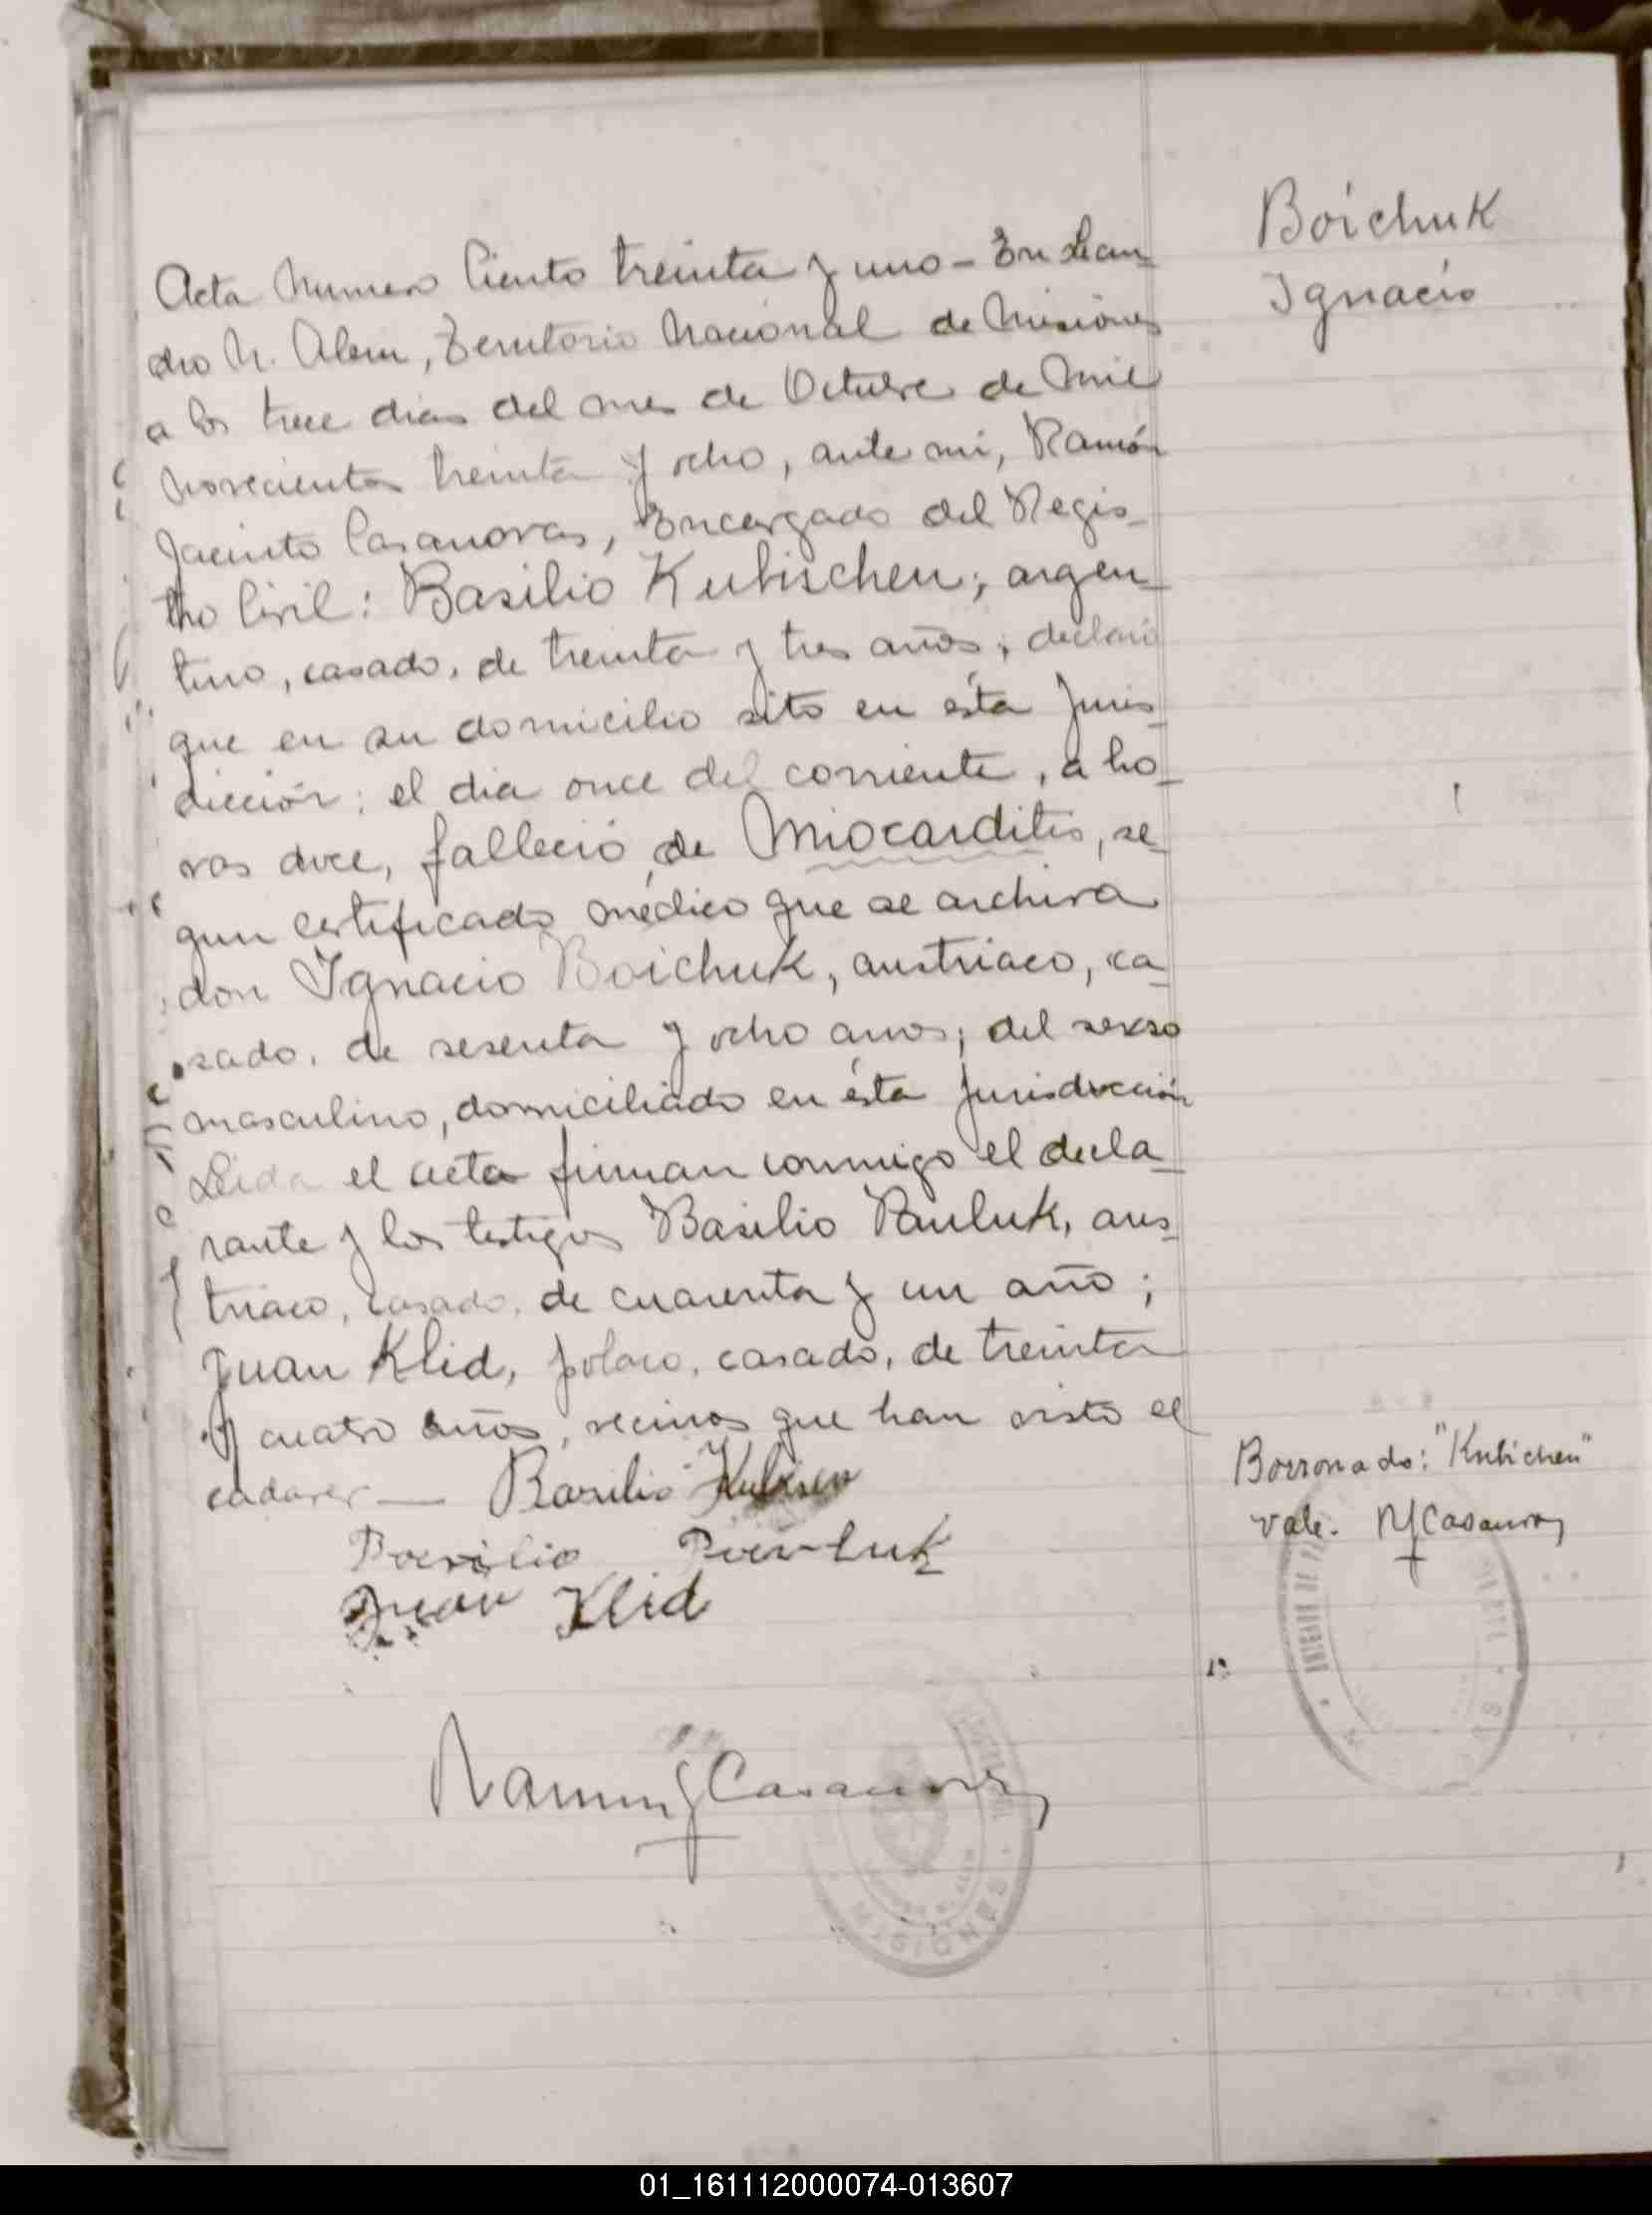 Boichuk
Ignacio
Acta Numero Ciento treinta y uno - En Lean_
dro N. Alem, Territorio Nacional de Misiones
a los trece dias del mes de Octubre de Mil
novecientos treinta y ocho, ante mi, Ramón
Jacinto Casanovas, Encargado del Regis_
tro Civil: Basilio Kubischen; argen_
tino, casado, de treinta y tres años; declaró
que en su domicilio sito en ésta Juris_
dicción; el dia once del corriente, a ho_
ras doce, falleció de Miocarditis, se_
gun certificado médico que se archiva
don Ignacio Boichuk, austriaco, ca_
sado, de sesenta y ocho anos; del sexso
masculino, domiciliado en ésta Jurisdicción
Leida el acta firman conmigo el decla_
rante y los testigos Basilio Pauluk, aus_
triaco, casado, de cuarenta y un año;
Juan Klid, polaco, casado, de treinta
y cuatro años, vecinos que han visto el
cadaver — Basilio
Basilio Pauluk
Juan Klid
Borronado: "Kubichen"
vale. RJCasanovas
Ramon J Casanovas
MISIONES